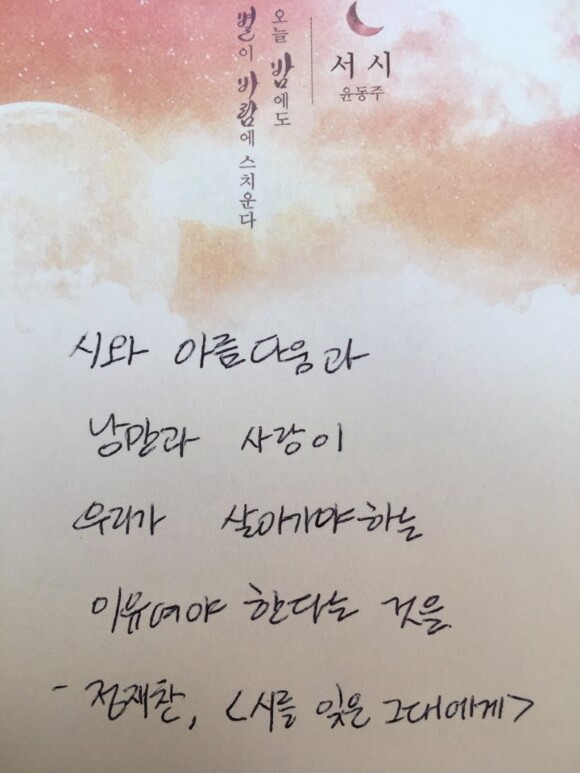 서시
윤동주
오늘 밤에도
별이 바람에 스치운다
시와 아름다움과
낭만과 사랑이
우리가 살아가야하는
이유여야 한다는 것을
- 정재찬, <시를 잊은 그대에게>